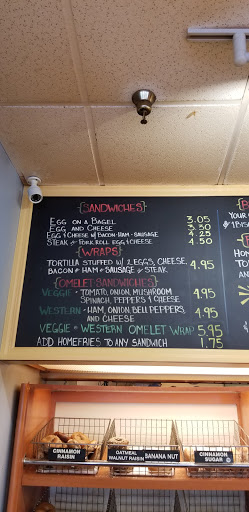 SANDWICHES
EGG ON A BAGEL 3.05
EGG AND CHEESE 3.50
EGG & CHEESE W/ BACON-HAM-SAUSAGE 4.25
STEAK OR PORK ROLL EGG & CHEESE 4.50
WRAPS
TORTILLA STUFFED W/ 2 EGGS, CHEESE,
BACON OR HAM OR SAUSAGE OR STEAK 4.95
OMELET SANDWICHES
VEGGIE - TOMATO, ONION, MUSHROOM
SPINACH, PEPPERS & CHEESE 4.95
WESTERN - HAM, ONION, BELL PEPPERS,
AND CHEESE 4.95
VEGGIE OR WESTERN OMELET WRAP 5.95
ADD HOMEFRIES TO ANY SANDWICH 1.75
YOUR
CINNAMON
RAISIN
OATMEAL
WALNUT RAISIN
BANANA NUT
CINNAMON
SUGAR